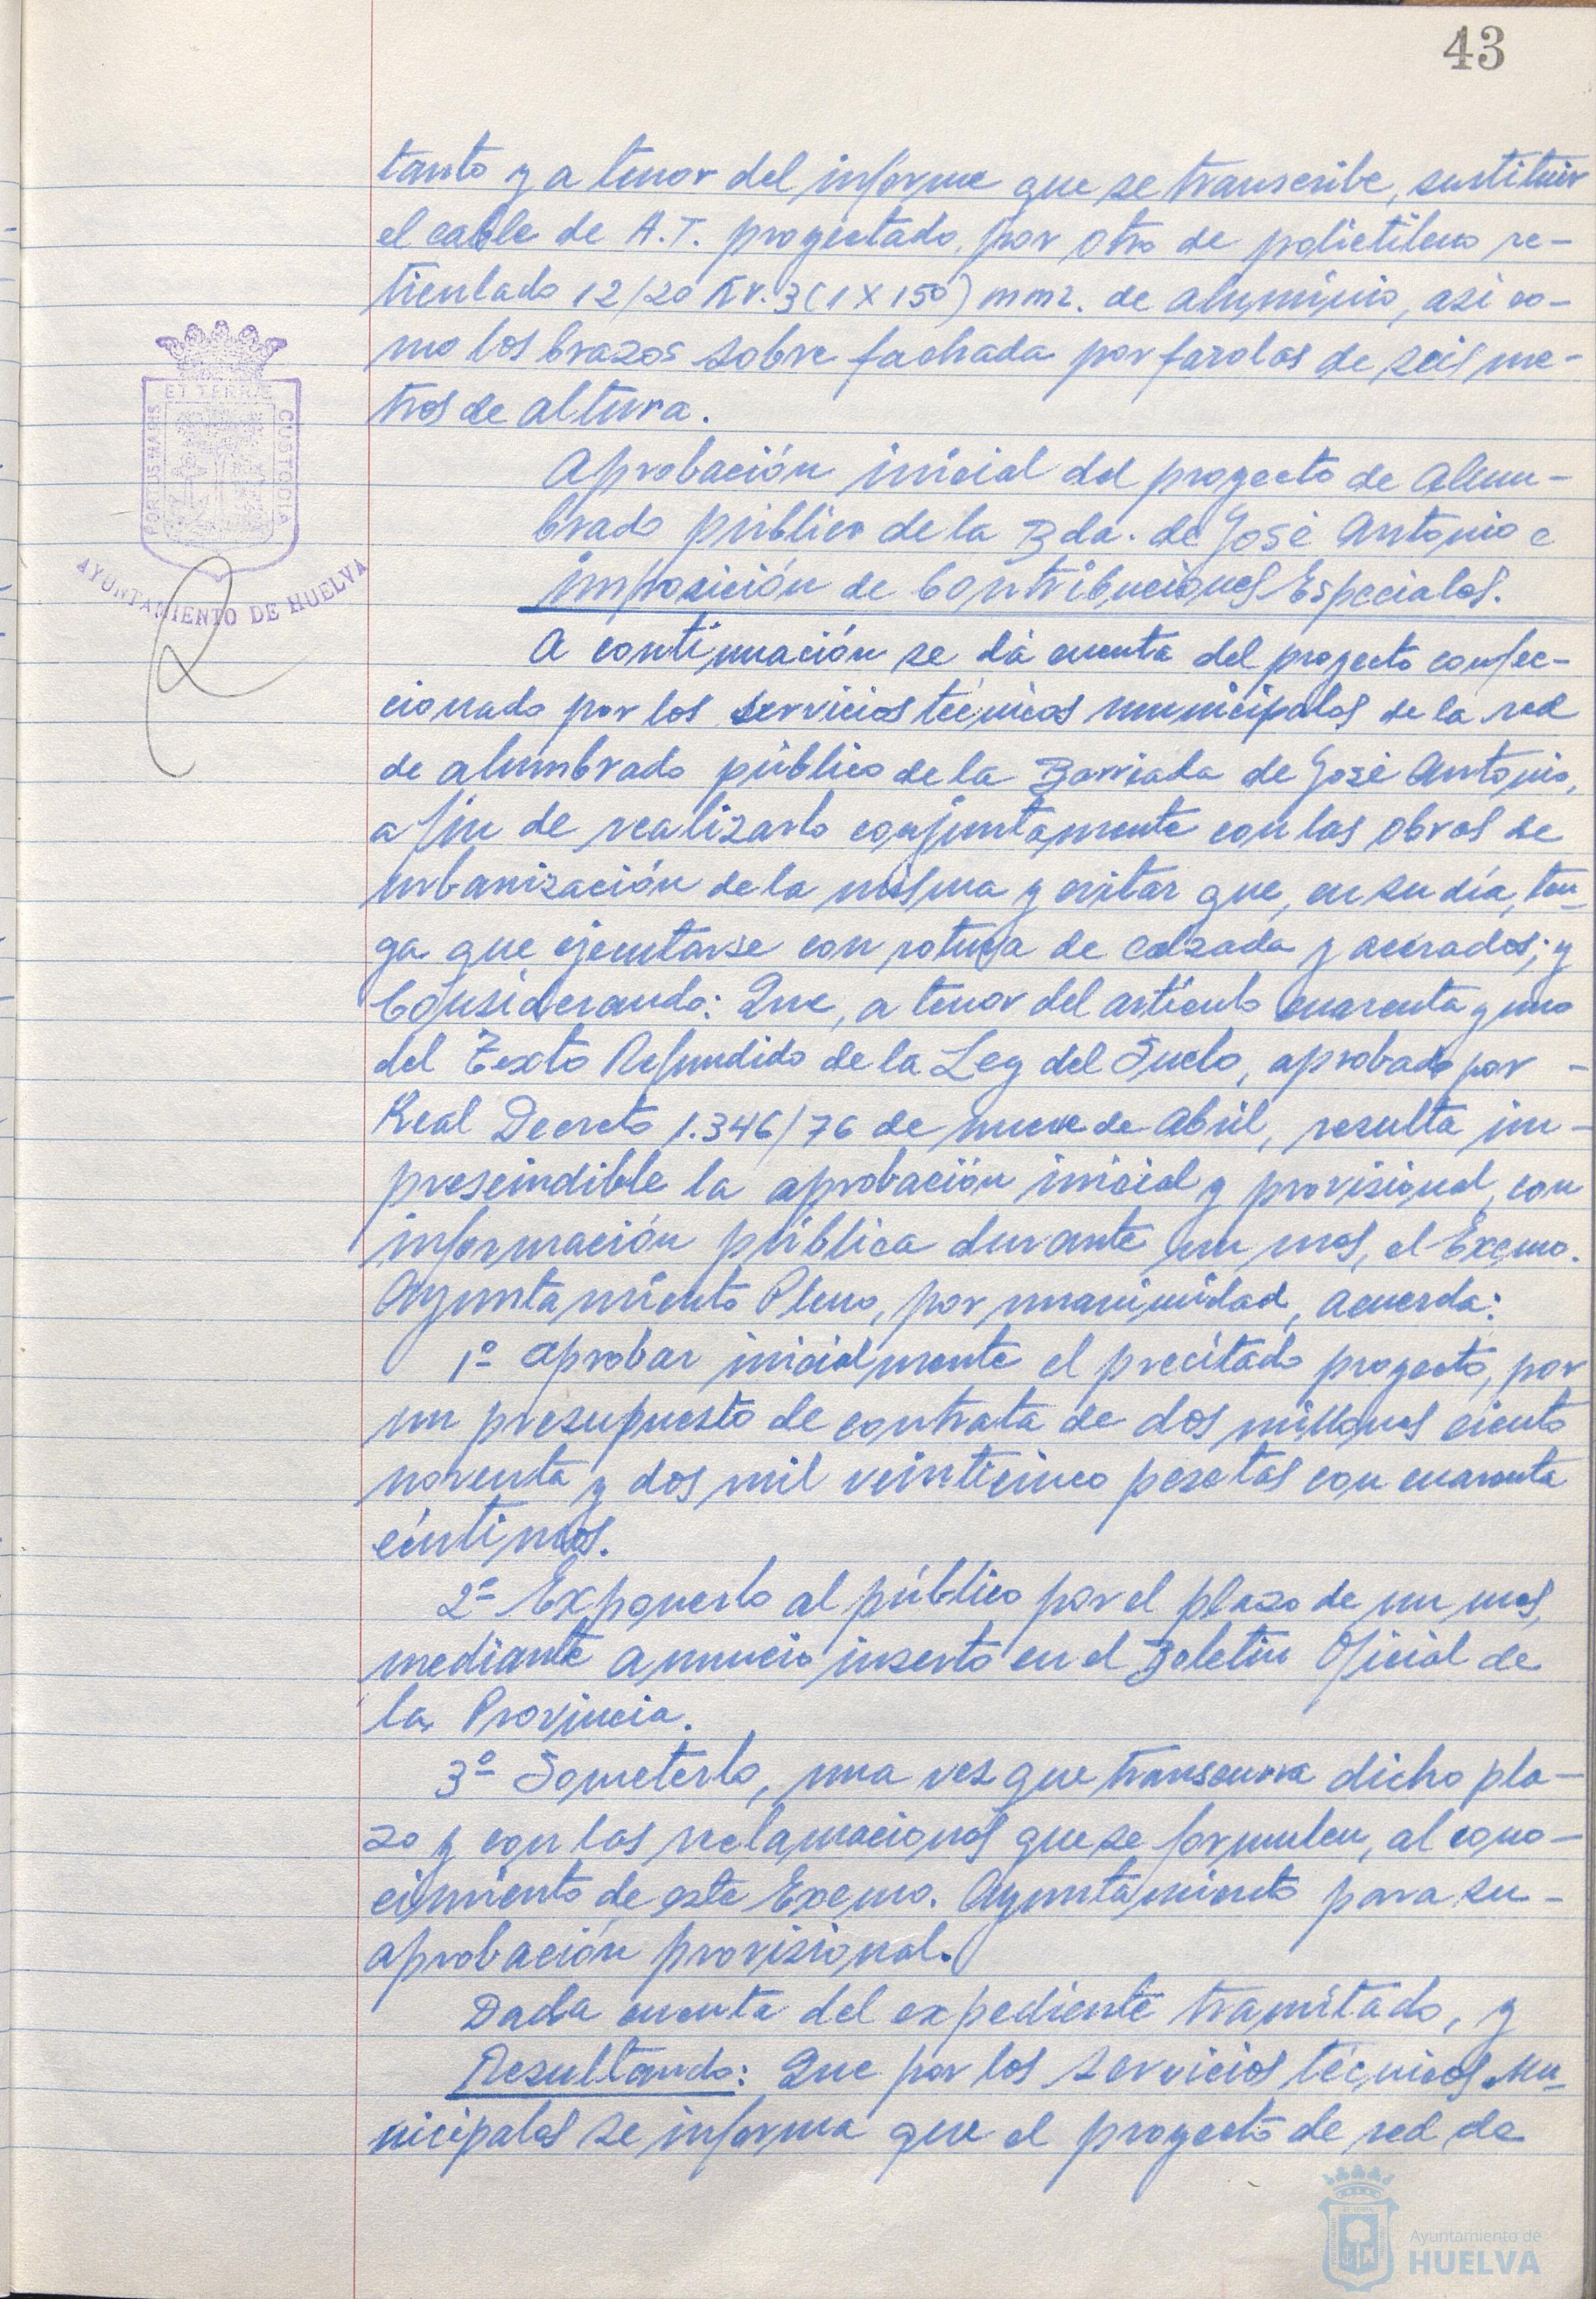 43
tanto y a tenor del informe que se transcribe, sustituir
el cable de A.T. proyectado, por otro de polietileno re-
ticulado 12/20 Kv. 3(1 X 150) mm2. de aluminio, asi co-
mo los brazos sobre fachada por farolas de seis me-
tros de altura.
Aprobación inicial del proyecto de Alum-
brado público de la Bda. de José Antonio e
imposición de Contribuciones Especiales.
A continuación se dá cuenta del proyecto confec-
cionado por los servicios técnicos municipales de la red
de alumbrado público de la Barriada de José Antonio,
a fin de realizarlo conjuntamente con las obras de
urbanización de la misma y evitar que, en su día, ten-
ga que ejecutarse con rotura de calzada y acerados; y
Considerando: Que, a tenor del artículo cuarenta y uno
del Texto Refundido de la Ley del Suelo, aprobado por -
Real Decreto 1.346/76 de nueve de Abril, resulta im-
prescindible la aprobación inicial y provisional, con
información pública durante un mes, el Excmo.
Ayuntamiento Pleno, por unanimidad, acuerda:
1º Aprobar inicialmente el precitado proyecto, por
un presupuesto de contrata de dos millones ciento
noventa y dos mil veinticinco pesetas con cuarenta
céntimos.
2º Exponerlo al público por el plazo de un mes,
mediante anuncio inserto en el Boletín Oficial de
la Provincia.
3º Someterlo, una vez que transcurra dicho pla-
zo y con las reclamaciones que se formulen, al cono-
cimiento de este Excmo. Ayuntamiento para su -
aprobación provisional.
Dada cuenta del expediente tramitado, y
Resultando: Que por los servicios técnicos Mu-
nicipales se informa que el proyecto de red de
PORTUS MARIS
ET TERRÆ
CUSTODIA
AYUNTAMIENTO DE HUELVA
Ayuntamiento de
HUELVA